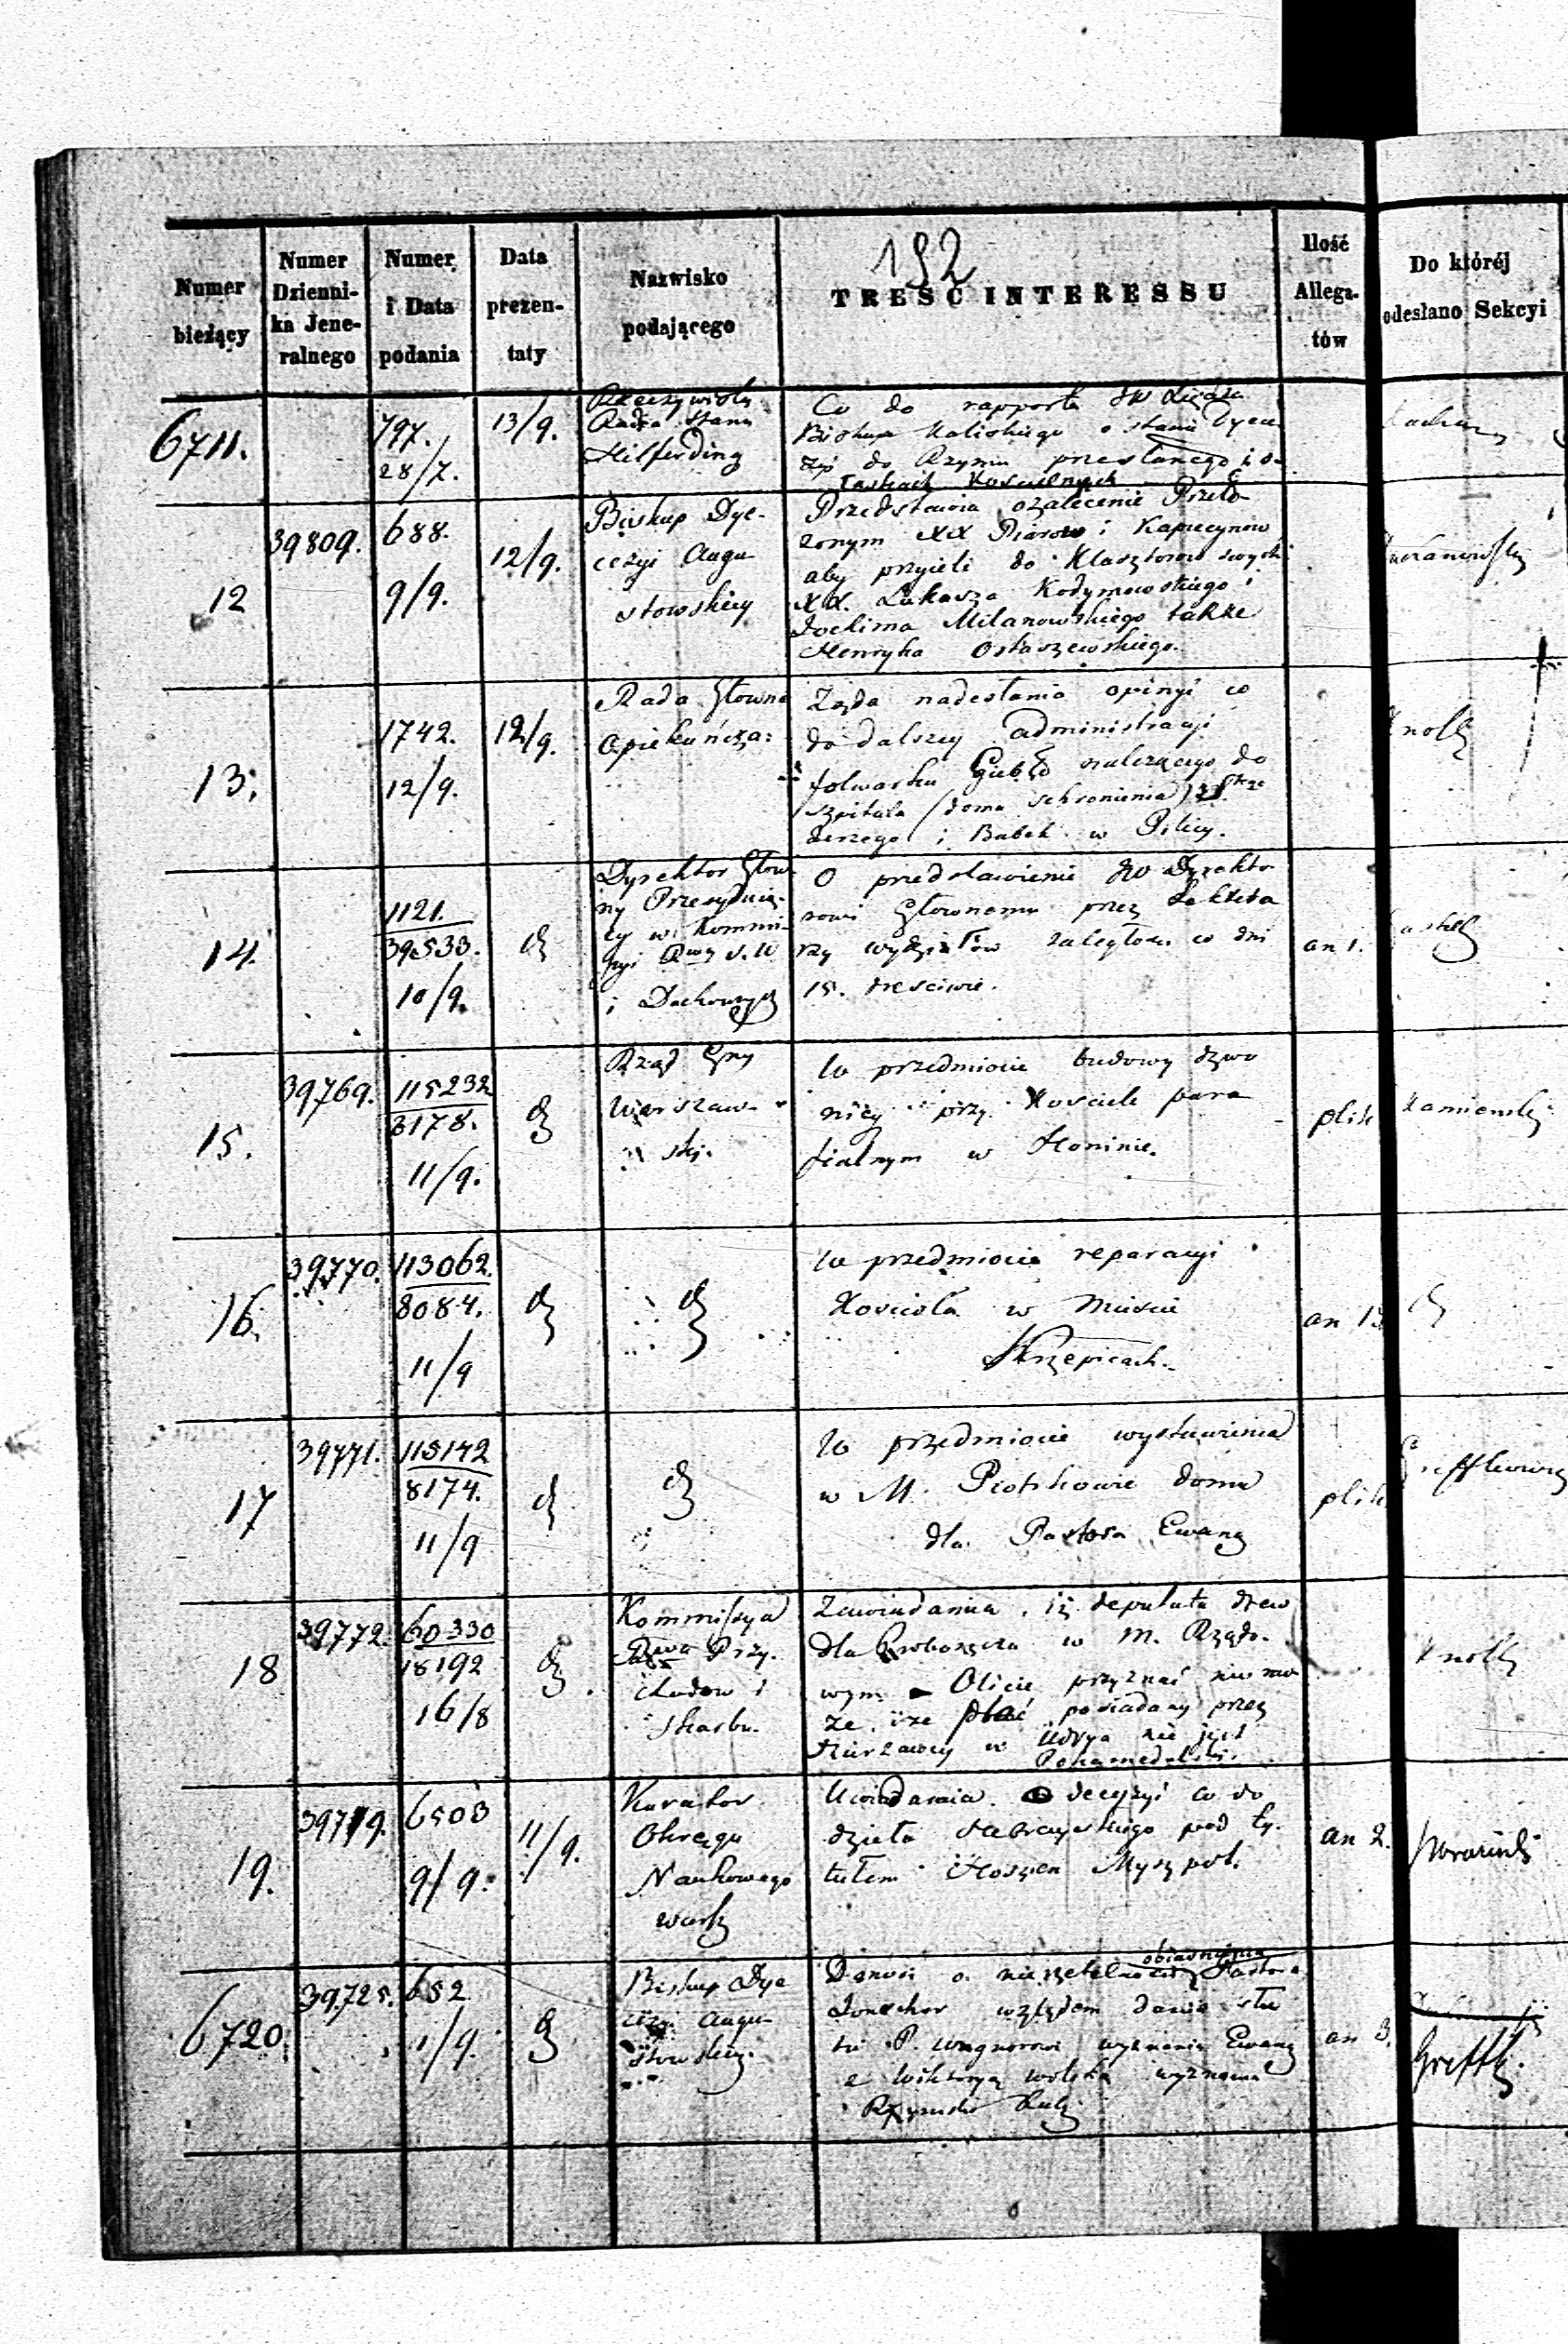 192
Numer bieżący
Numer Dzienni-
ka Jene-
ralnego
Numer
i Data
podania
Data
prezen-
taty
Nazwisko
podającego
TREŚĆ INTERESSU
Ilość
Allega-
tów
Do któréj
odesłano Sekcyi
6711.
797.
28/7.
13/9.
Rzeczywisty
Radca Stanu
Hilferding
Co do rapportu JW Księdza
Biskupa Kaliskiego o stanie Dyece
zyi do Rzymu przesłanego i o
łaskach Kościelnych
12
39809.
688.
9/9.
12/9.
Biskup Dye-
cezyi Augu-
stowskiey
Przedstawia o zalecenie Przeło
żonym XX Piarów i Kapucynów
aby przyieli do Klasztorów swych
XX. Łukasza Kodymowskiego i
Joachima Milanowskiego także
Henryka Ostaszewskiego.
13.
1742.
12/9.
12/9.
Rada Główna
Opiekuńcza
Żąda nadesłania opinyi co
do dalszey administracyi
folwarku Giebło należącego do
Szpitala (domu schronienia)
i Babek w Pilicy.
Knoll
14.
1121.
39533.
10/9.
Dyrektor Głów-
ny Prezyduią-
cy w Kommi-
syi Rwey S. W
i Duchownych
O przedstawienie JW Dyrekto-
rowi Głównemu przez
rzy wydziałów zaległości co dni
15.
an 1.
15.
39769.
115232
8178.
11/9.
Rząd Gny
Warszaw-
ski.
W przedmiocie budowy dzwo
nicy przy Kościele para
fialnym w Koninie.
plik
Kamieński
16.
39770.
113062.
8084.
11/9
W przedmiocie reparacyi
Kościoła w Mieście
Krzepicach.
an 13
17
39771.
115142
8174.
11/9
W przedmiocie wystawienia
w M. Piotrkowie domu
dla Pastora Ewang
plik
18
39772.
60330
18192
16/8
Kommissya
Rwa Przy-
chodów i
Skarbu.
Zawiadamia, iż deputatu drew
dla Proboszcza w M. Rządo-
wym Olicie przyznać nie mo
że, że płac posiadany przez
dzierżawcy w Udrya nie jest
Pokamedulski.
Knoll
19.
39779.
6503
9/9.
11/9.
Kurator
Okręgu
Naukowego
Warsz
Uwiadamia o decyzyi co do
dzieła pod ty-
tułem
an 2.
6720.
39725.
652
1/9.
Biskup Dye
cezyi Augu-
stowskiey.
Donosi o nierzetelności obiaśnienia Pastora
względem dania ślu
bu P. Wagnerowi wyznania Ewang
z Wiktoryą Wolską wyznania
Rzymsko Kat.
an 3.